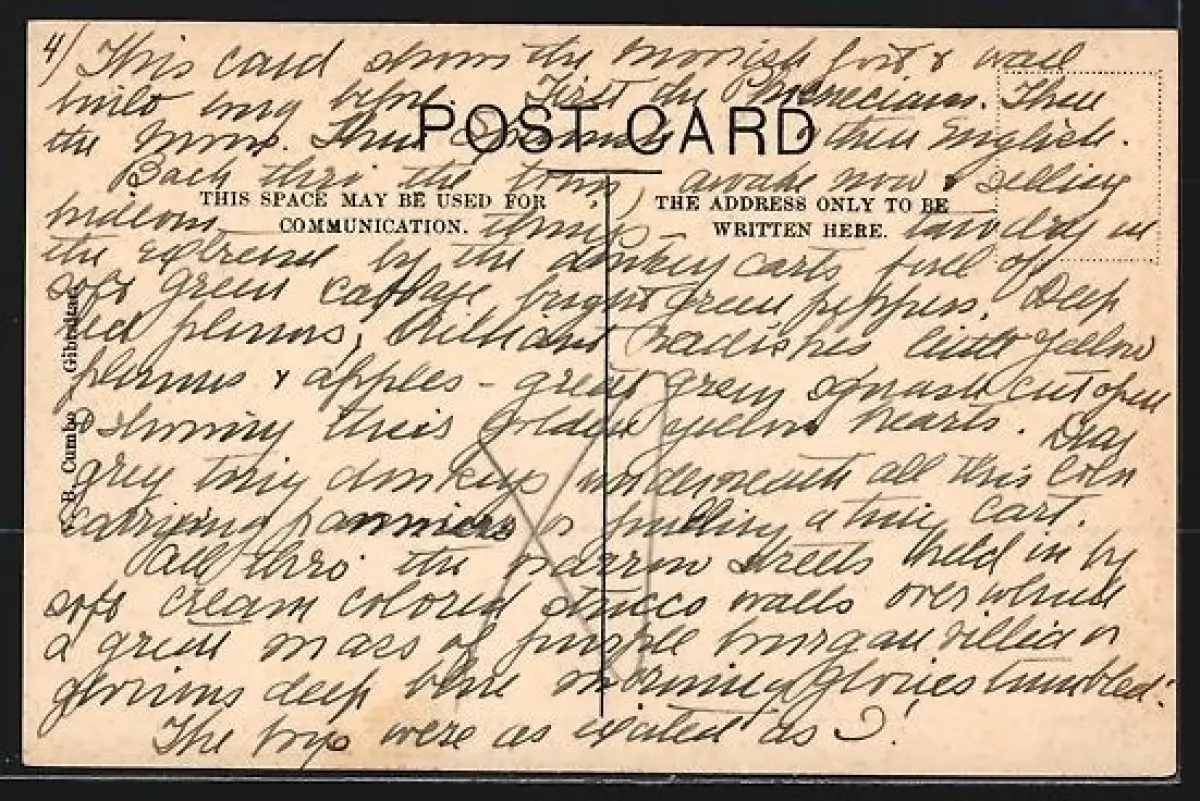 4) This card shows the Moorish fort & wall
built long before. First the Phenecians. Then
the Moors. Then Spaniards then English.
POST CARD
Back thro the town, awake now & selling
THIS SPACE MAY BE USED FOR
COMMUNICATION.
THE ADDRESS ONLY TO BE
WRITTEN HERE.
hideous things – tawdry in
the extreme by the donkey carts full of
soft green cabbage bright green peppers, Deep
red plums, brilliant radishes little yellow
plums & apples – great green squash cut open
showing their golden yellow hearts.
grey tiny donkeys underneath all this color
carrying panniers or pulling a tiny cart.
All thro' the narrow streets held in by
soft cream colored stucco walls over which
a great mass of purple bourgainvillia or
glorious deep blue morning glories tumbled.
The boys were as excited as I!
B. Cumbo, Gibraltar